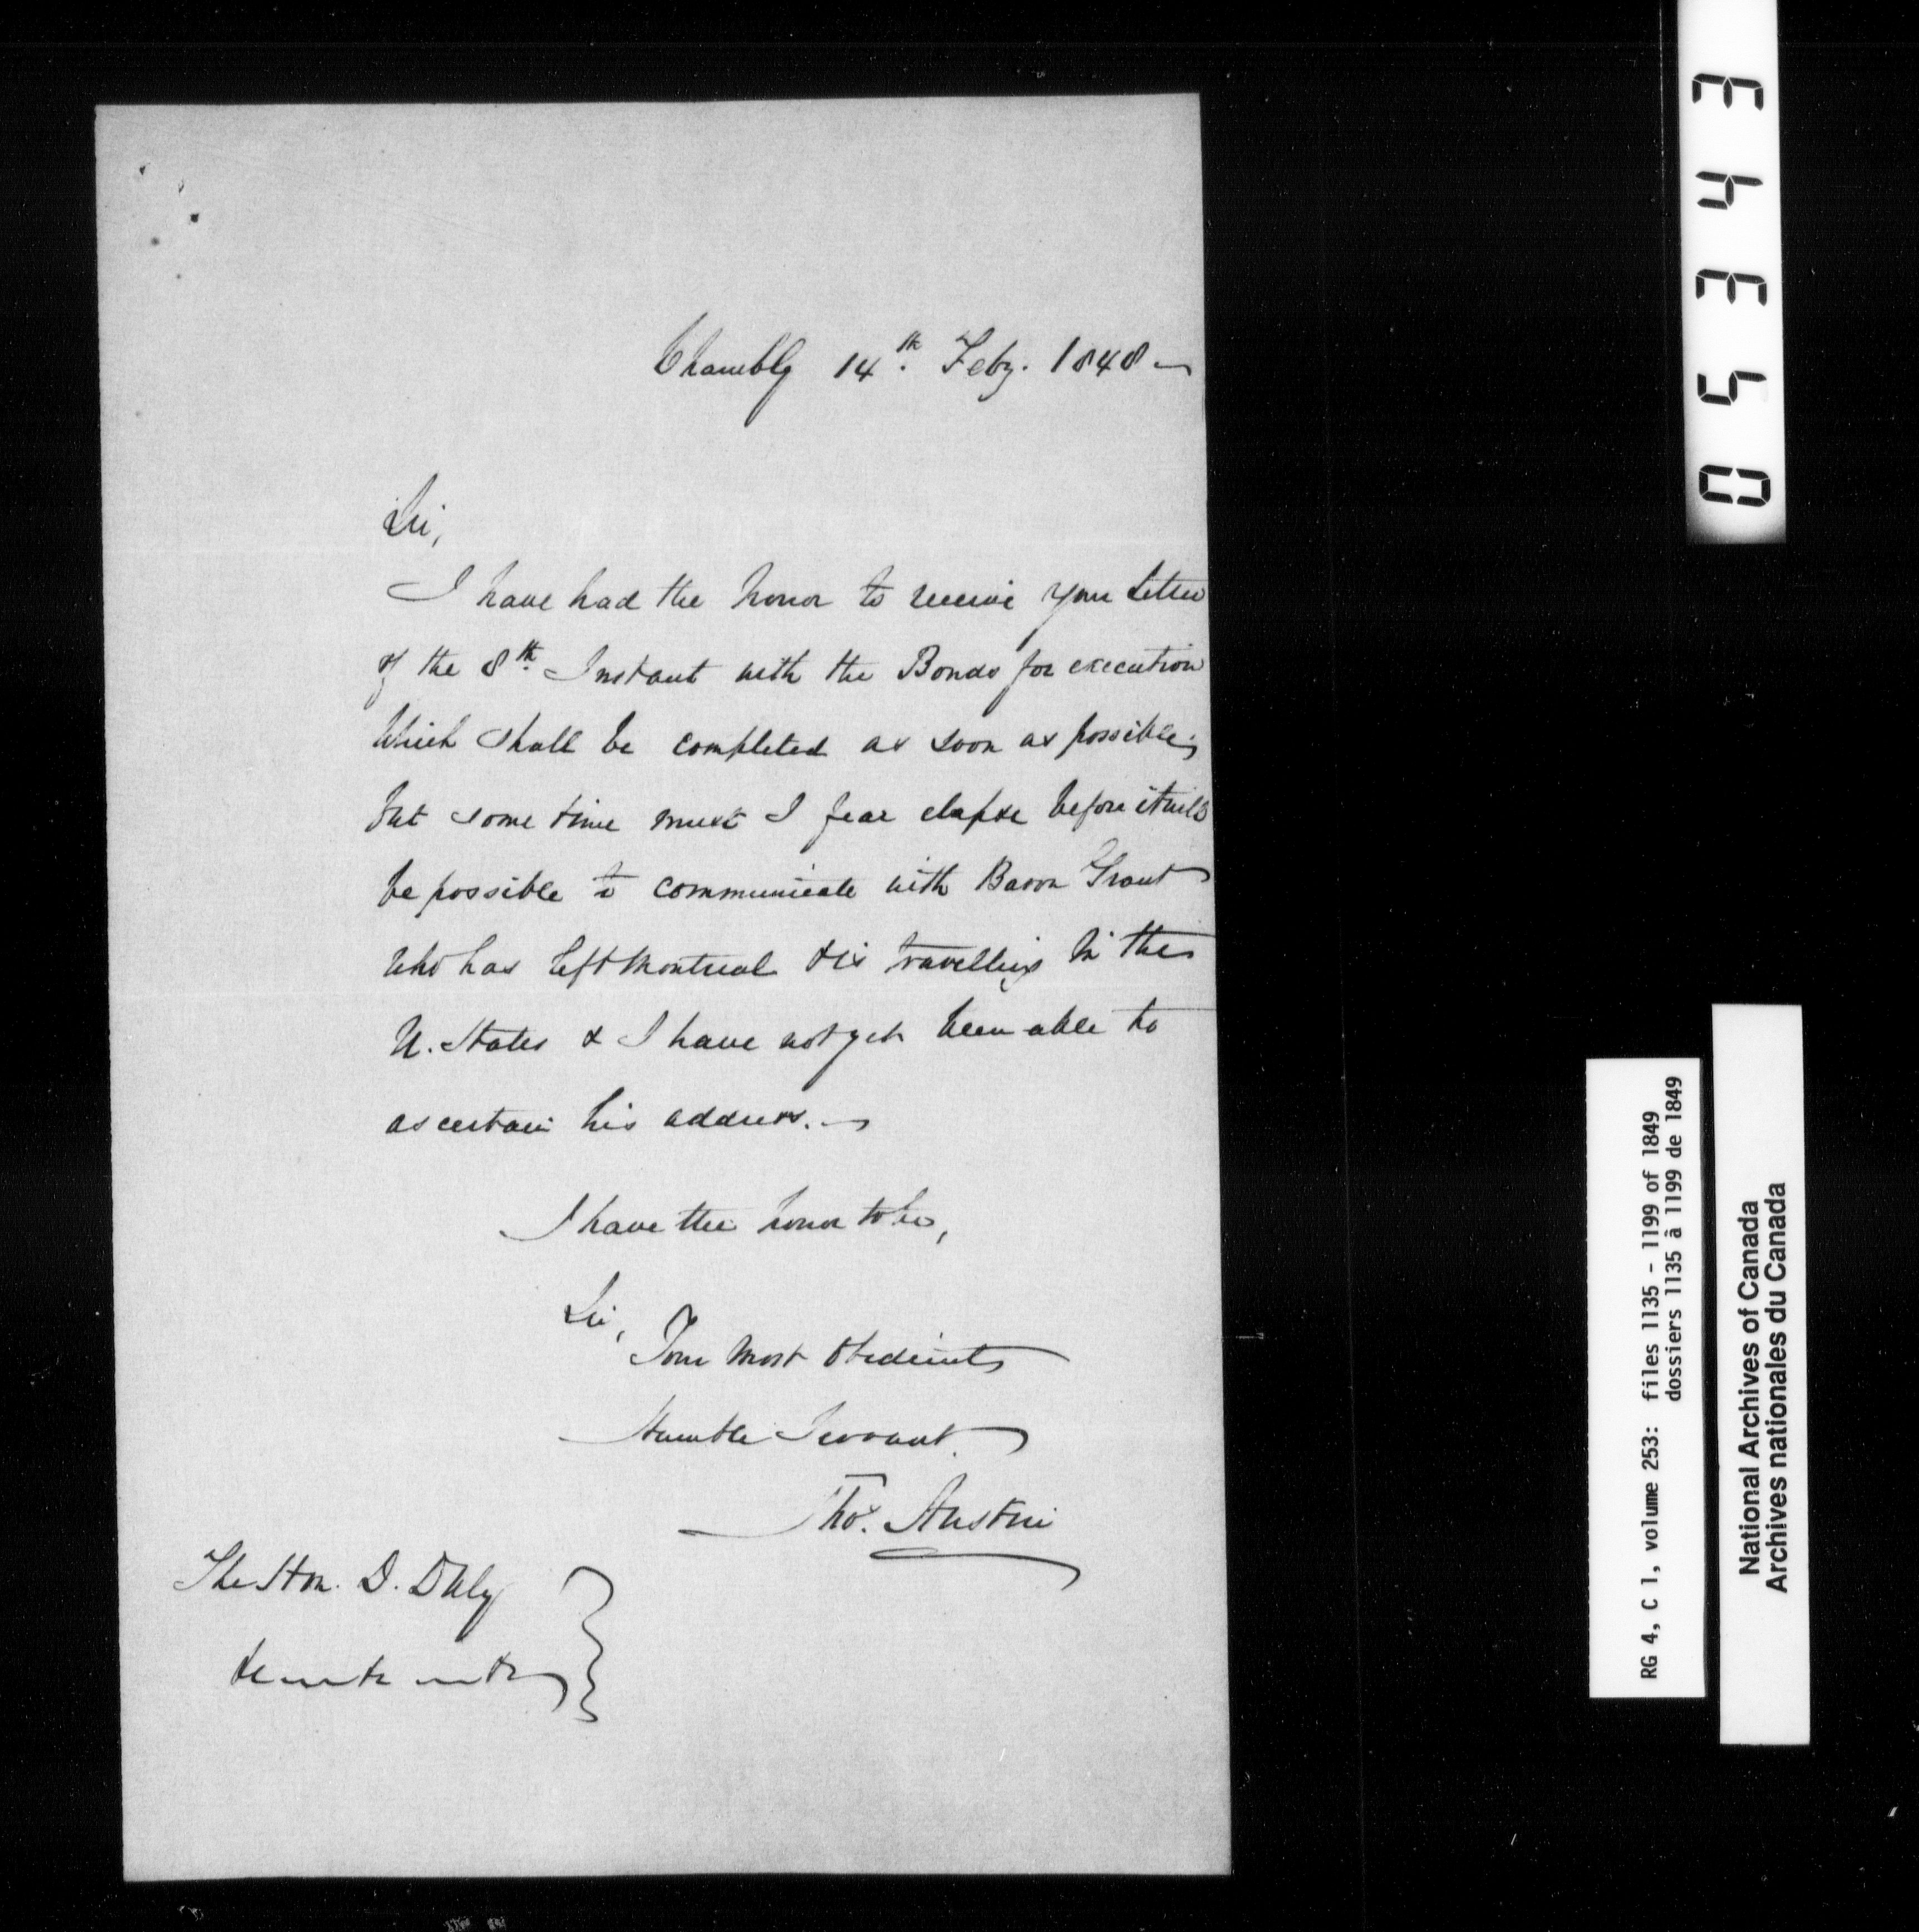 Chambly 14th. Feby. 1848
Sir,
I have had the honor to receive your Letter
of the 8th. Instant with the Bonds for execution
Which shall be completed as soon as possible;
but some time must I fear elapse before it will
be possible to communicate with Baron Grant
who has left Montreal & is travelling in the
U. States & I have not yet been able to
ascertain his address.
I have the honor to be,
Sir,
Your Most Obedient
Humble Servant
Thos. Austin
The Hon. D. Daly
05343
RG 4, C 1, volume 253: files 1135 - 1199 of 1849
dossiers 1135 à 1199 de 1849
National Archives of Canada
Archives nationales du Canada